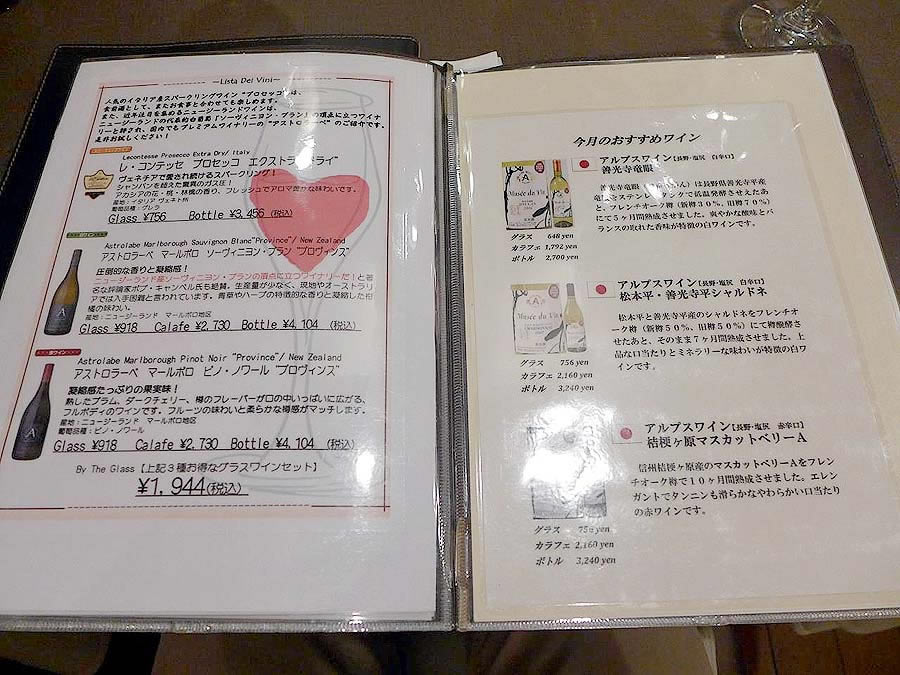 ～Lista Dei Vini～
人気のイタリア産スパークリングワイン “プロセッコ”は、
食前酒として、またお食事と合わせても楽しめます。
また、近年注目を集めるニュージーランドワインは、
ニュージーランドの代表的白葡萄「ソーヴィニヨン・ブラン」の頂点に立つワイナ
リーと評され、国内でもプレミアムワイナリーの “アストロラーベ” のご紹介です。
是非お試しください！
Lecontesse Prosecco Extra Dry/ Italy
レ・コンテッセ プロセッコ エクストラ “ドライ”
ヴェネチアで愛され続けるスパークリング！
シャンパンを超えた驚異のガス圧！
アカシアの花・桃・林檎の香り、フレッシュでアロマ豊かな味わいです。
産地：イタリア ヴェネト州
葡萄品種：グレラ
Glass ¥756 Bottle ¥3,456 (税込)
Astrolabe Marlborough Sauvignon Blanc“Province”/ New Zealand
アストロラーベ マールボロ ソーヴィニヨン・ブラン “プロヴィンス”
圧倒的な香りと凝縮感！
ニュージーランド産ソーヴィニヨン・ブランの頂点に立つワイナリーだ！と著
名な評論家ボブ・キャンベル氏も絶賛。生産量が少なく、現地やオーストラリ
アでは入手困難と言われています。青草やハーブの特徴的な香りと凝縮した柑
橘の味わい。
産地：ニュージーランド マールボロ地区
Glass ¥918 Calafe ¥2,730 Bottle ¥4,104 (税込)
赤ワイン
Astrolabe Marlborough Pinot Noir “Province”/ New Zealand
アストロラーベ マールボロ ピノ・ノワール “プロヴィンス”
凝縮感たっぷりの果実味！
熟したプラム、ダークチェリー、樽のフレーバーが口の中いっぱいに広がる、
フルボディのワインです。フルーツの味わいと柔らかな樽感がマッチします。
産地：ニュージーランド マールボロ地区
葡萄品種：ピノ・ノワール
Glass ¥918 Calafe ¥2,730 Bottle ¥4,104 (税込)
By The Glass【上記３種お得なグラスワインセット】
¥1,944(税込)
今月のおすすめワイン
アルプスワイン【長野・塩尻 白辛口】
善光寺竜眼
善光寺竜眼は長野県善光寺平産
竜眼をステンレスタンクで低温発酵させたあ
と、フレンチオーク樽（新樽３０％、旧樽７０％）
にて５ヶ月間熟成させました。爽やかな酸味とバ
ランスの取れた香味が特徴の白ワインです。
Musée du Vin
グラス 648 yen
カラフェ 1,792 yen
ボトル 2,700 yen
アルプスワイン【長野・塩尻 白辛口】
松本平・善光寺平シャルドネ
松本平と善光寺平産のシャルドネをフレンチ
オーク樽（新樽５０％、旧樽５０％）にて樽醗酵さ
せたあと、そのまま７ヶ月間熟成させました。上
品な口当たりとミネラリーな味わいが特徴の白ワ
インです。
Musée du Vin
グラス 756 yen
カラフェ 2,160 yen
ボトル 3,240 yen
アルプスワイン【長野・塩尻 赤辛口】
桔梗ヶ原マスカットベリーA
信州桔梗ヶ原産のマスカットベリーAをフレン
チオーク樽で１０ヶ月間熟成させました。エレン
ガントでタンニンも滑らかなやわらかい口当たり
の赤ワインです。
グラス 756 yen
カラフェ 2,160 yen
ボトル 3,240 yen